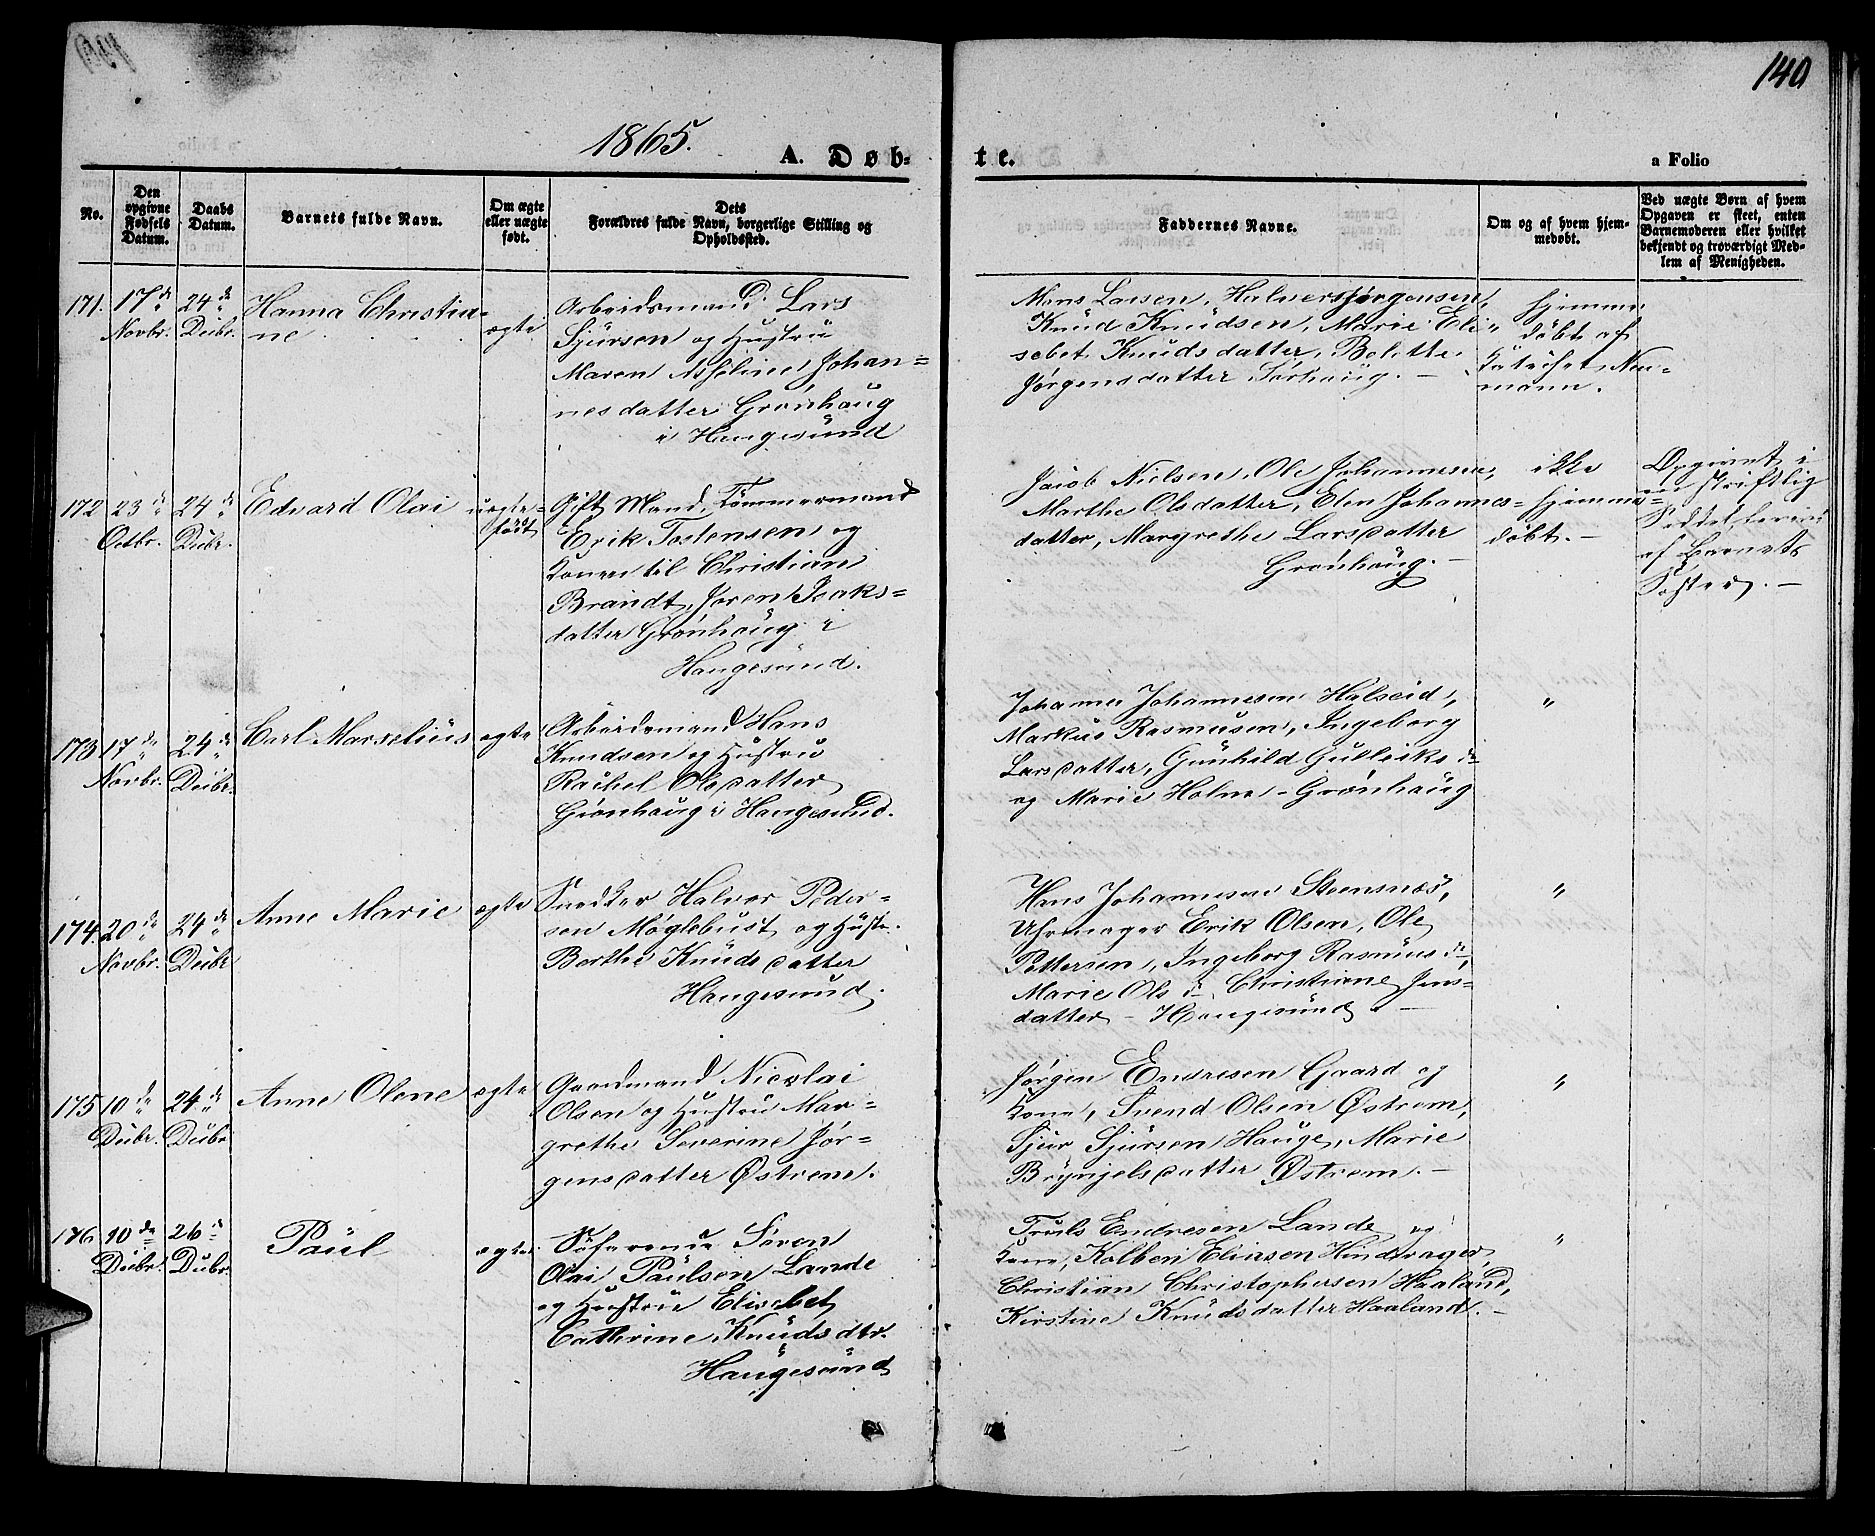 140
1865.
A. Døb-
te.
a Folio
No.
Den
opgivne
Fødsels
Datum.
Daabs
Datum.
Barnets fulde Navn.
Om ægte
eller uægte
født.
Dets
Forældres fulde Navn, borgerlige Stilling og
Opholdssted.
Faddernes Navne.
Om og af hvem hjem-
medøbt.
Ved uægte Børn af hvem
Opgaven er skeet, enten
Barnemoderen eller hvilket
bekjendt og troværdigt Med-
lem af Menigheden.
171. 17de
Novbr.
24de
Decbr.
Hanna Christia-
ne
ægte
Arbeidsmand Lars
Sjursen og Hustru
Maren Asseline Johan-
nesdatter Grønhaug
i Haugesund
Mons Larsen, Halver Jørgensen,
Knud Knudsen, Marie Eli-
sebet Knudsdatter, Bolette
Jørgensdatter Sørhaug. -
Hjemme
døbt af
Neu-
mann.
172 23de
Octbr.
24de
Decbr.
Edvard Olai
uægte-
født
Gift Mand, Tømmermand
Erik Tostensen og
Konen til Christian
Brandt, Joren Isaks-
datter Grønhaug i
Haugesund.
Jacob Nielsen, Ole Johannesen,
Marthe Olsdatter, Elen Johannes-
datter, Margrethe Larsdatter
Grønhaug. -
ikke
hjemme-
døbt. -
Opgivet i
en skriftlig
Seddel,
af Barnets
173 17de
Novbr.
24de
Decbr.
Carl Marselius
ægte
Arbeidsmand Hans
Knudsen og Hustru
Rachel Olsdatter
Grønhaug i Haugesund.
Johannes Johannesen Halseid,
Markus Rasmusen, Ingeborg
Larsdatter, Gunhild Gulleiksdr
og Marie Holm - Grønhaug
"
174. 20de
Novbr.
24de
Decbr
Anne Marie
ægte
Snedker Halvor Peder-
sen Møglebust og Hustr.
Berthe Knudsdatter
Haugesund.
Hans Johannesen Steensnæs,
Uhrmager Erik Olsen, Ole
Pettersen, Ingeborg Rasmusdr,
Marie Olsdr, Christiane Jens-
datter - Haugesund. -
"
175 10de
Decbr.
24de
Decbr
Anne Olene
ægte
Gaardmand Nicolai
Olsen og Hustru Mar-
grethe Severine Jør-
gensdatter Østrem.
Jørgen Endresen Gaard og
Kone, Svend Olsen Østrem,
Sjur Sjursen Hauge, Marie
Brynjelsdatter Østrem. -
"
176 10de
Decbr.
26de
Decbr.
Paul
ægte
Søfarende Søren
Olai Paulsen Lande
og Hustru Elisebet
Cathrine Knudsdtr.
Haugesund
Truls Endresen Lande og
Kone, Kolben Eliasen Hindvager,
Christian Christophersen Haaland,
Kirstine Knudsdatter Haaland. -
"